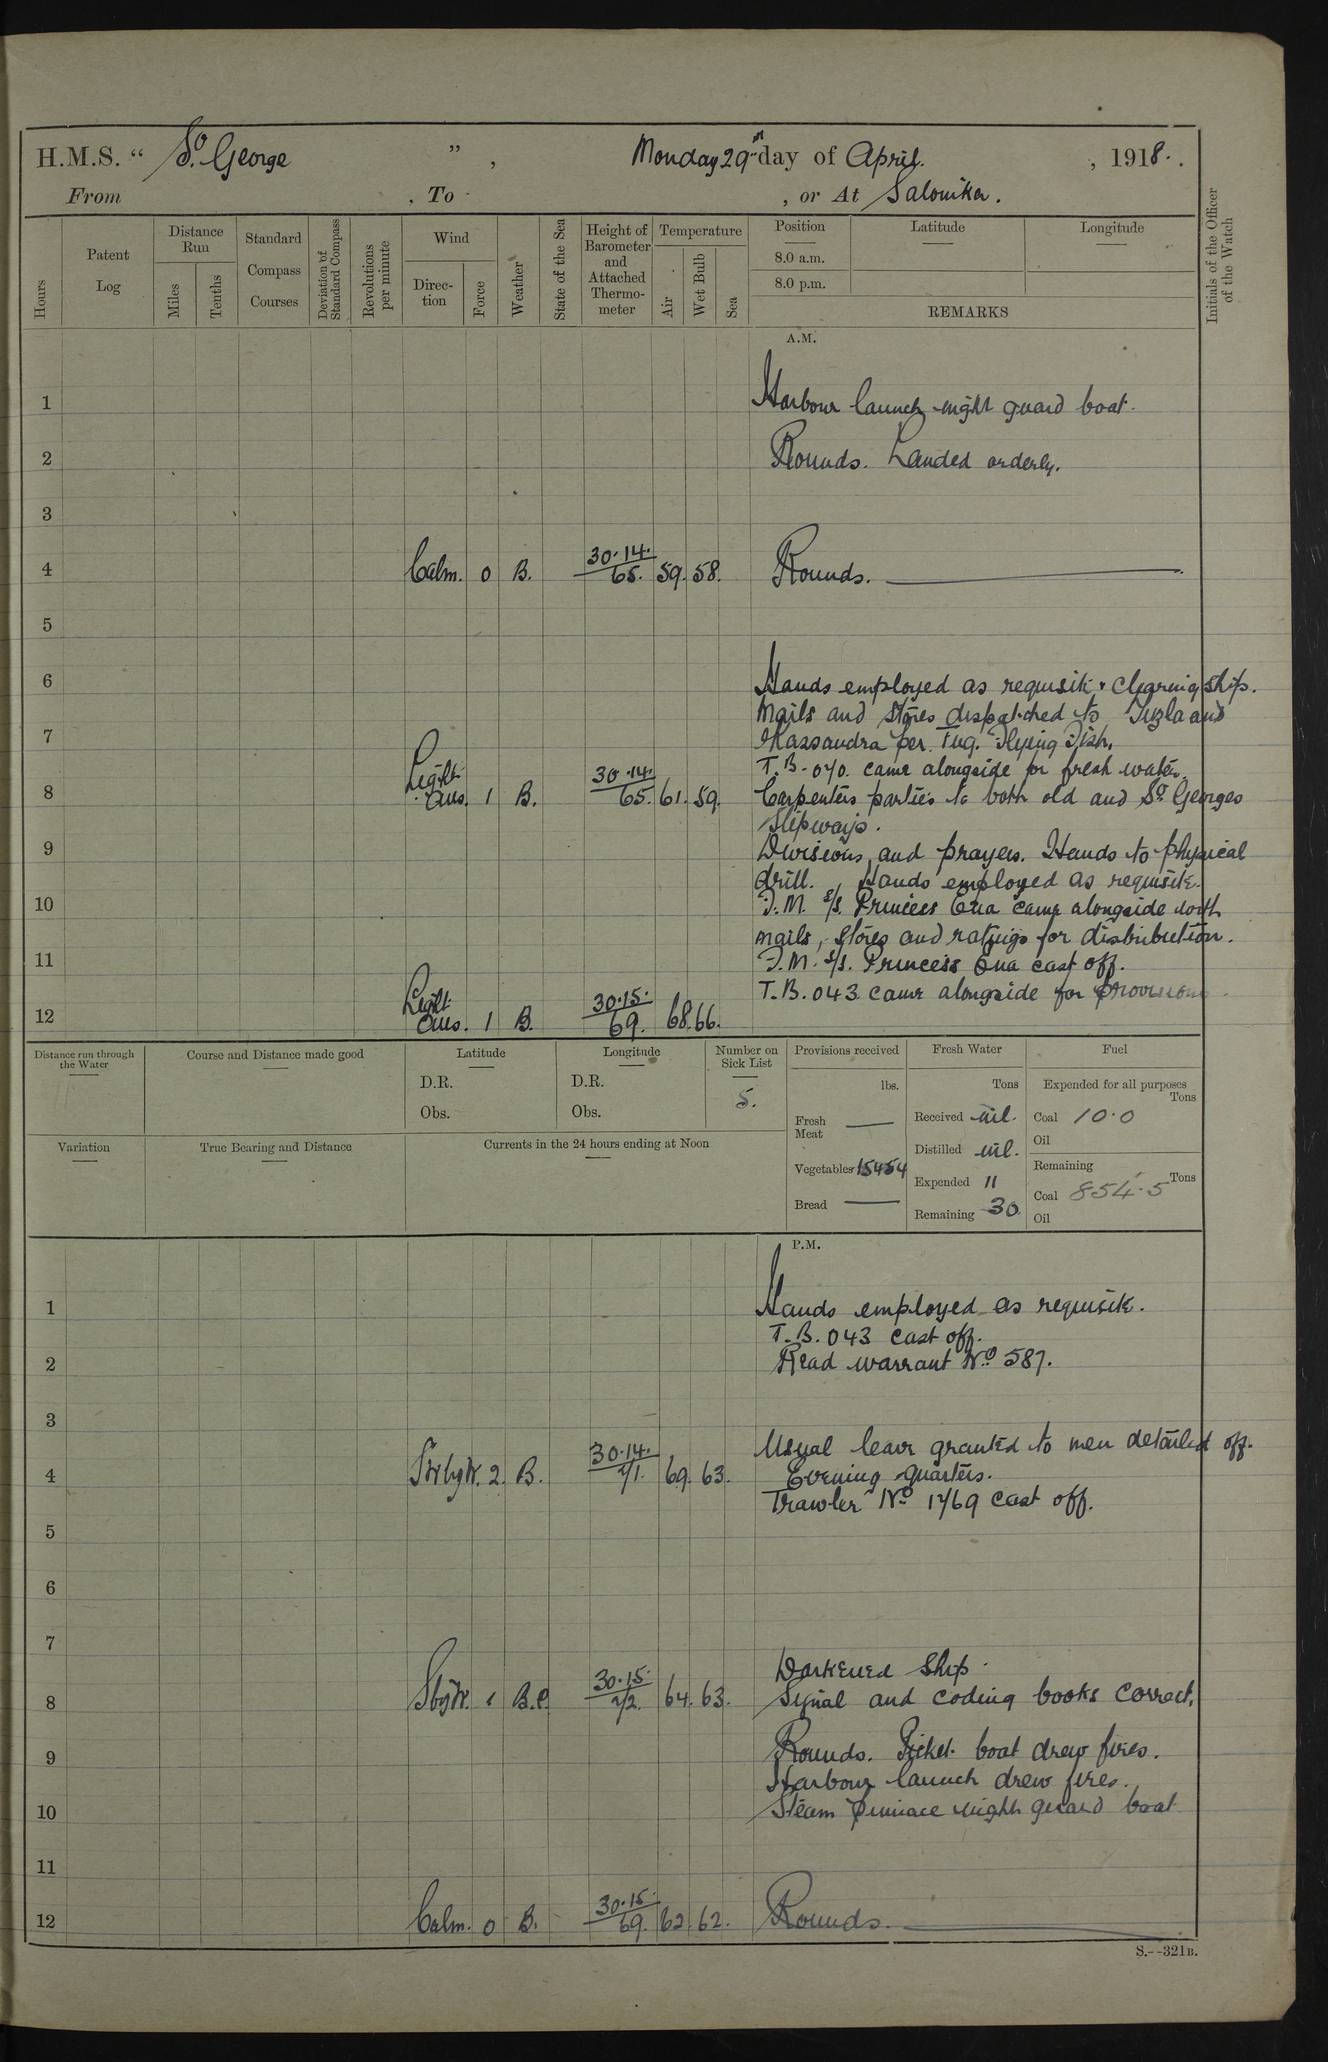 H.M.S. “ St. George ” , Monday 29th day of April. , 1918. .
From , To , or At Salonika.
Hours
Patent Log
Distance Run
Miles
Tenths
Standard Compass Courses
Deviation of Standard Compass
Revolutions per minute
Wind
Direction
Force
Weather
State of the Sea
Height of Barometer and Attached Thermometer
Temperature
Air
Wet Bulb
Sea
Position
8.0 a.m.
8.0 p.m.
Latitude
Longitude
REMARKS
Initials of the Officer of the Watch
A.M.
1 Harbour launch night guard boat.
2 Rounds. Landed orderly.
3
4 Calm. 0 B. 30.14. 65. 59. 58. Rounds.
5
6 Hands employed as requisite & cleaning ship.
Mails and Stores dispatched to Tuzla and
7 Kassandra per. Tug. Flying Fish.
T.B. 070. came alongside for fresh water.
8 Light airs. 1 B. 30.14. 65. 61. 59. Carpenters parties to both old and St Georges
Slipways.
9 Divisions and prayers. Hands to physical
drill. Hands employed as requisite.
10 F.M. S/S. Princess Ena came alongside with
mails, stores and ratings for distribution.
11 F.M. S/S. Princess Ena cast off.
T.B. 043 came alongside for provisions.
12 Light airs. 1 B. 30.15. 69. 68. 66.
Distance run through the Water
Course and Distance made good
Latitude
D.R.
Obs.
Longitude
D.R.
Obs.
Number on Sick List
5.
Provisions received
lbs.
Fresh Meat
Vegetables 15454
Bread
Fresh Water
Tons
Received nil.
Distilled nil.
Expended 11
Remaining 30
Fuel
Expended for all purposes
Tons
Coal 10.0
Oil
Remaining
Tons
Coal 854.5
Oil
Variation
True Bearing and Distance
Currents in the 24 hours ending at Noon
P.M.
1 Hands employed as requisite.
T.B. 043 cast off.
2 Read warrant No 587.
3
Usual leave granted to men detailed off.
4 SWbyW. 2. B. 30.14. 71. 69. 63. Evening quarters.
Trawler No 1769 cast off.
5
6
7
Darkened ship.
8 SbyW. 1 B.C. 30.15. 72. 64. 63. Signal and coding books correct.
9 Rounds. Picket boat drew fires.
Harbour launch drew fires.
10 Steam pinnace night guard boat
11
12 Calm. 0 B. 30.15. 69. 62. 62. Rounds.
S.--321B.